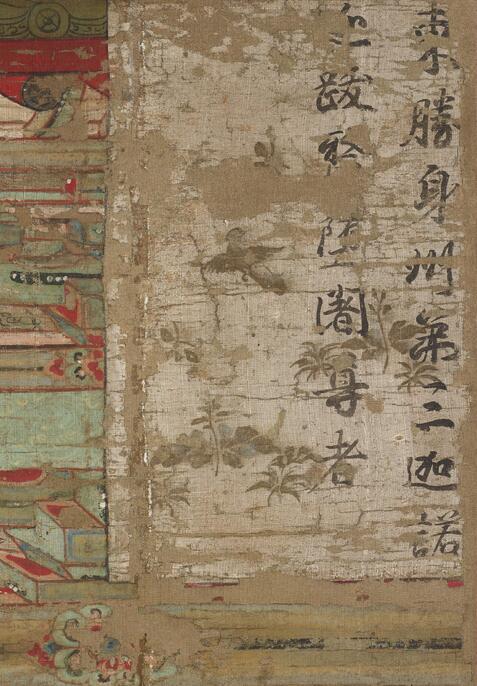 東勝身州第二迦諾
迦跋釐墮闍尊者